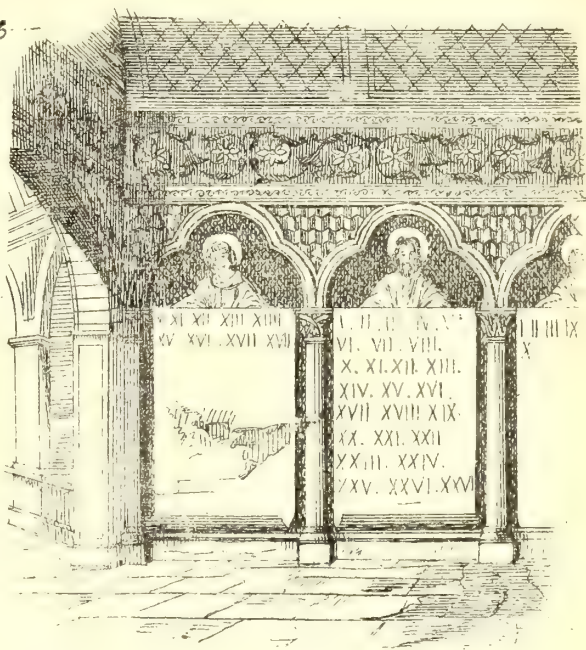 XI XII XIII XIIII
XV XVI . XVII XVII
VI. VII. VIII.
X. XI. XII. XIII.
XIV. XV. XVI.
XVII XVIII XIX.
XX. XXI. XXII
XXIII. XXIV.
XXV. XXVI. XXVI
I II III IX
X